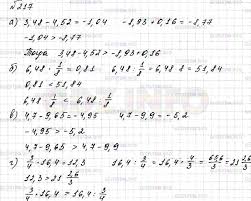 №217
а) 3,48-4,52 = -1,04   -8,93+0,16 = -8,77
-1,04 > -8,77
Тогда 3,48-4,52 > -8,93+0,16
б) 6,48 · 1/8 = 0,81   6,48 : 1/8 = 6,48 · 8 = 51,84
0,81 < 51,84
6,48 · 1/8 < 6,48 : 1/8
в) 4,7-9,65 = -4,95   4,7-9,9 = -5,2
-4,95 > -5,2
4,7-9,65 > 4,7-9,9
г) 3/4 · 16,4 = 12,3   16,4 : 3/4 = 16,4 · 4/3 = 65,6/3 = 21 2,6/3
12,3 < 21 2,6/3
3/4 · 16,4 < 16,4 : 3/4